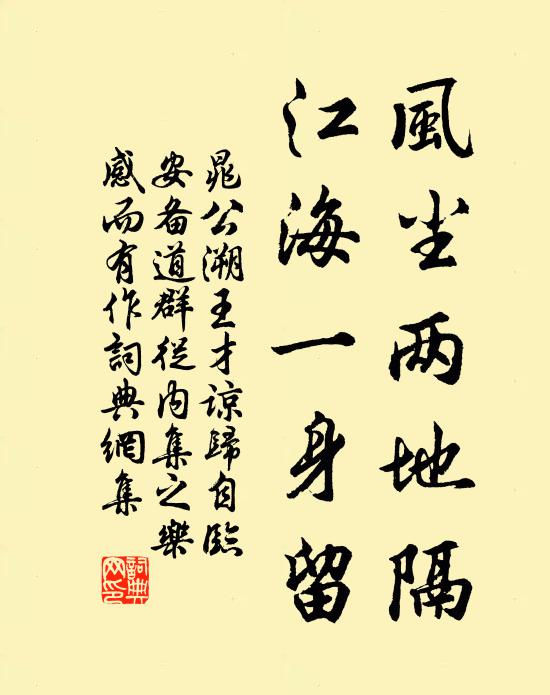 風尘两地隔
江海一身留
晁公溯王才谅歸自臨
安备道群從内集之樂
感而有作詞典網集
詞典
网印